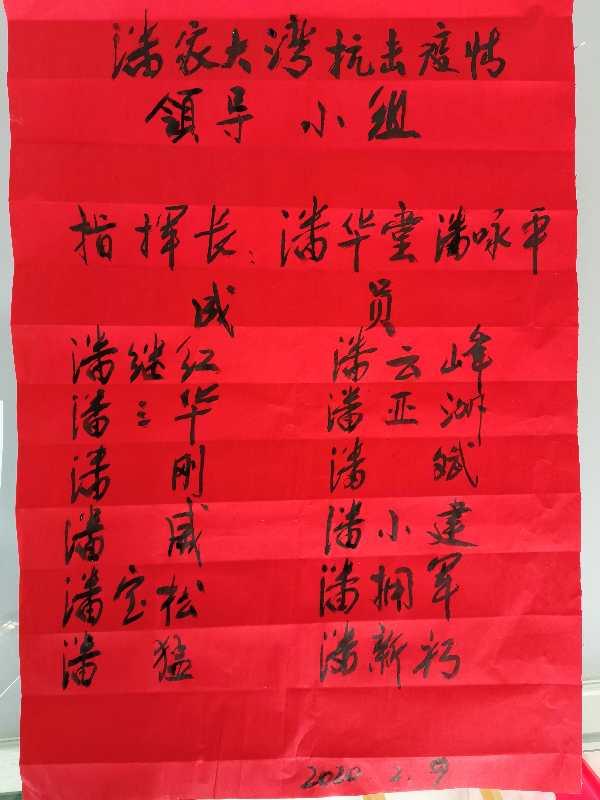 潘家大湾抗击疫情
領导小组
指挥长：潘华堂 潘咏平
成 员
潘继红 潘云峰
潘三华 潘亚洲
潘 刚 潘 斌
潘 威 潘小建
潘宝松 潘拥军
潘 猛 潘新
2020.2.9